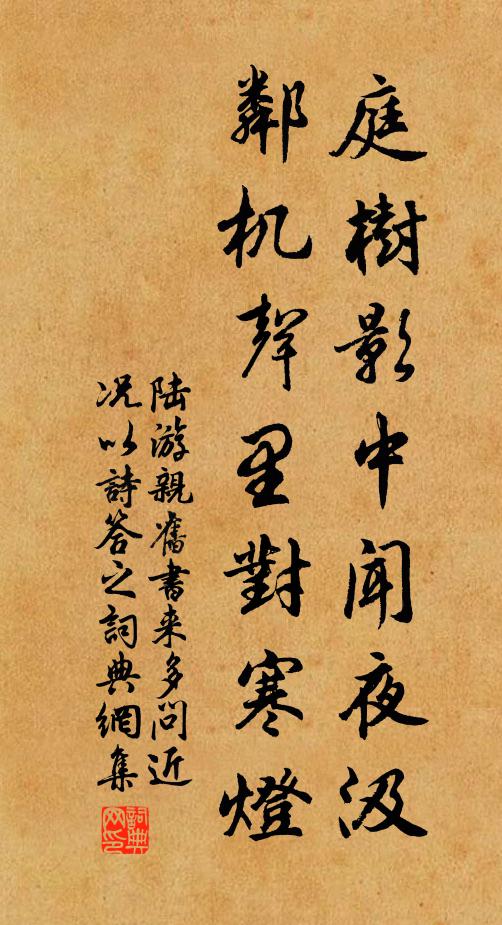 庭樹影中闻夜汲
鄰机聲里對寒燈
陆游親舊書来多问近
况以詩答之詞典網集
詞典
网印